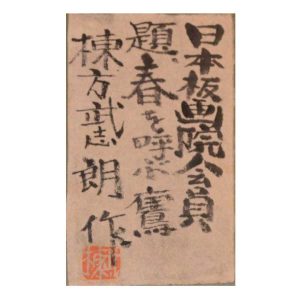 日本板画院会員
題、春を呼ぶ鷹
棟方武志朗作
棟